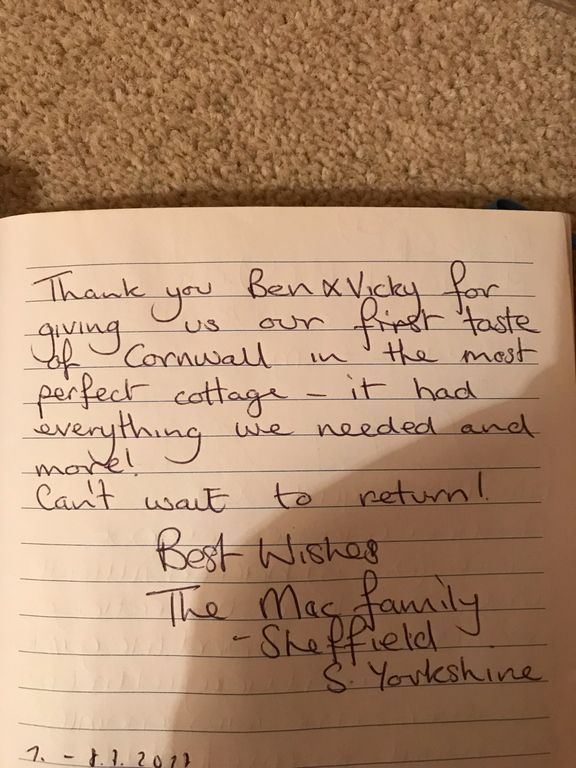 Thank you Ben & Vicky for
giving us our first taste
of Cornwall in the most
perfect cottage - it had
everything we needed and
more!
Can't wait to return!
Best Wishes
The Mac family
- Sheffield
S. Yorkshire